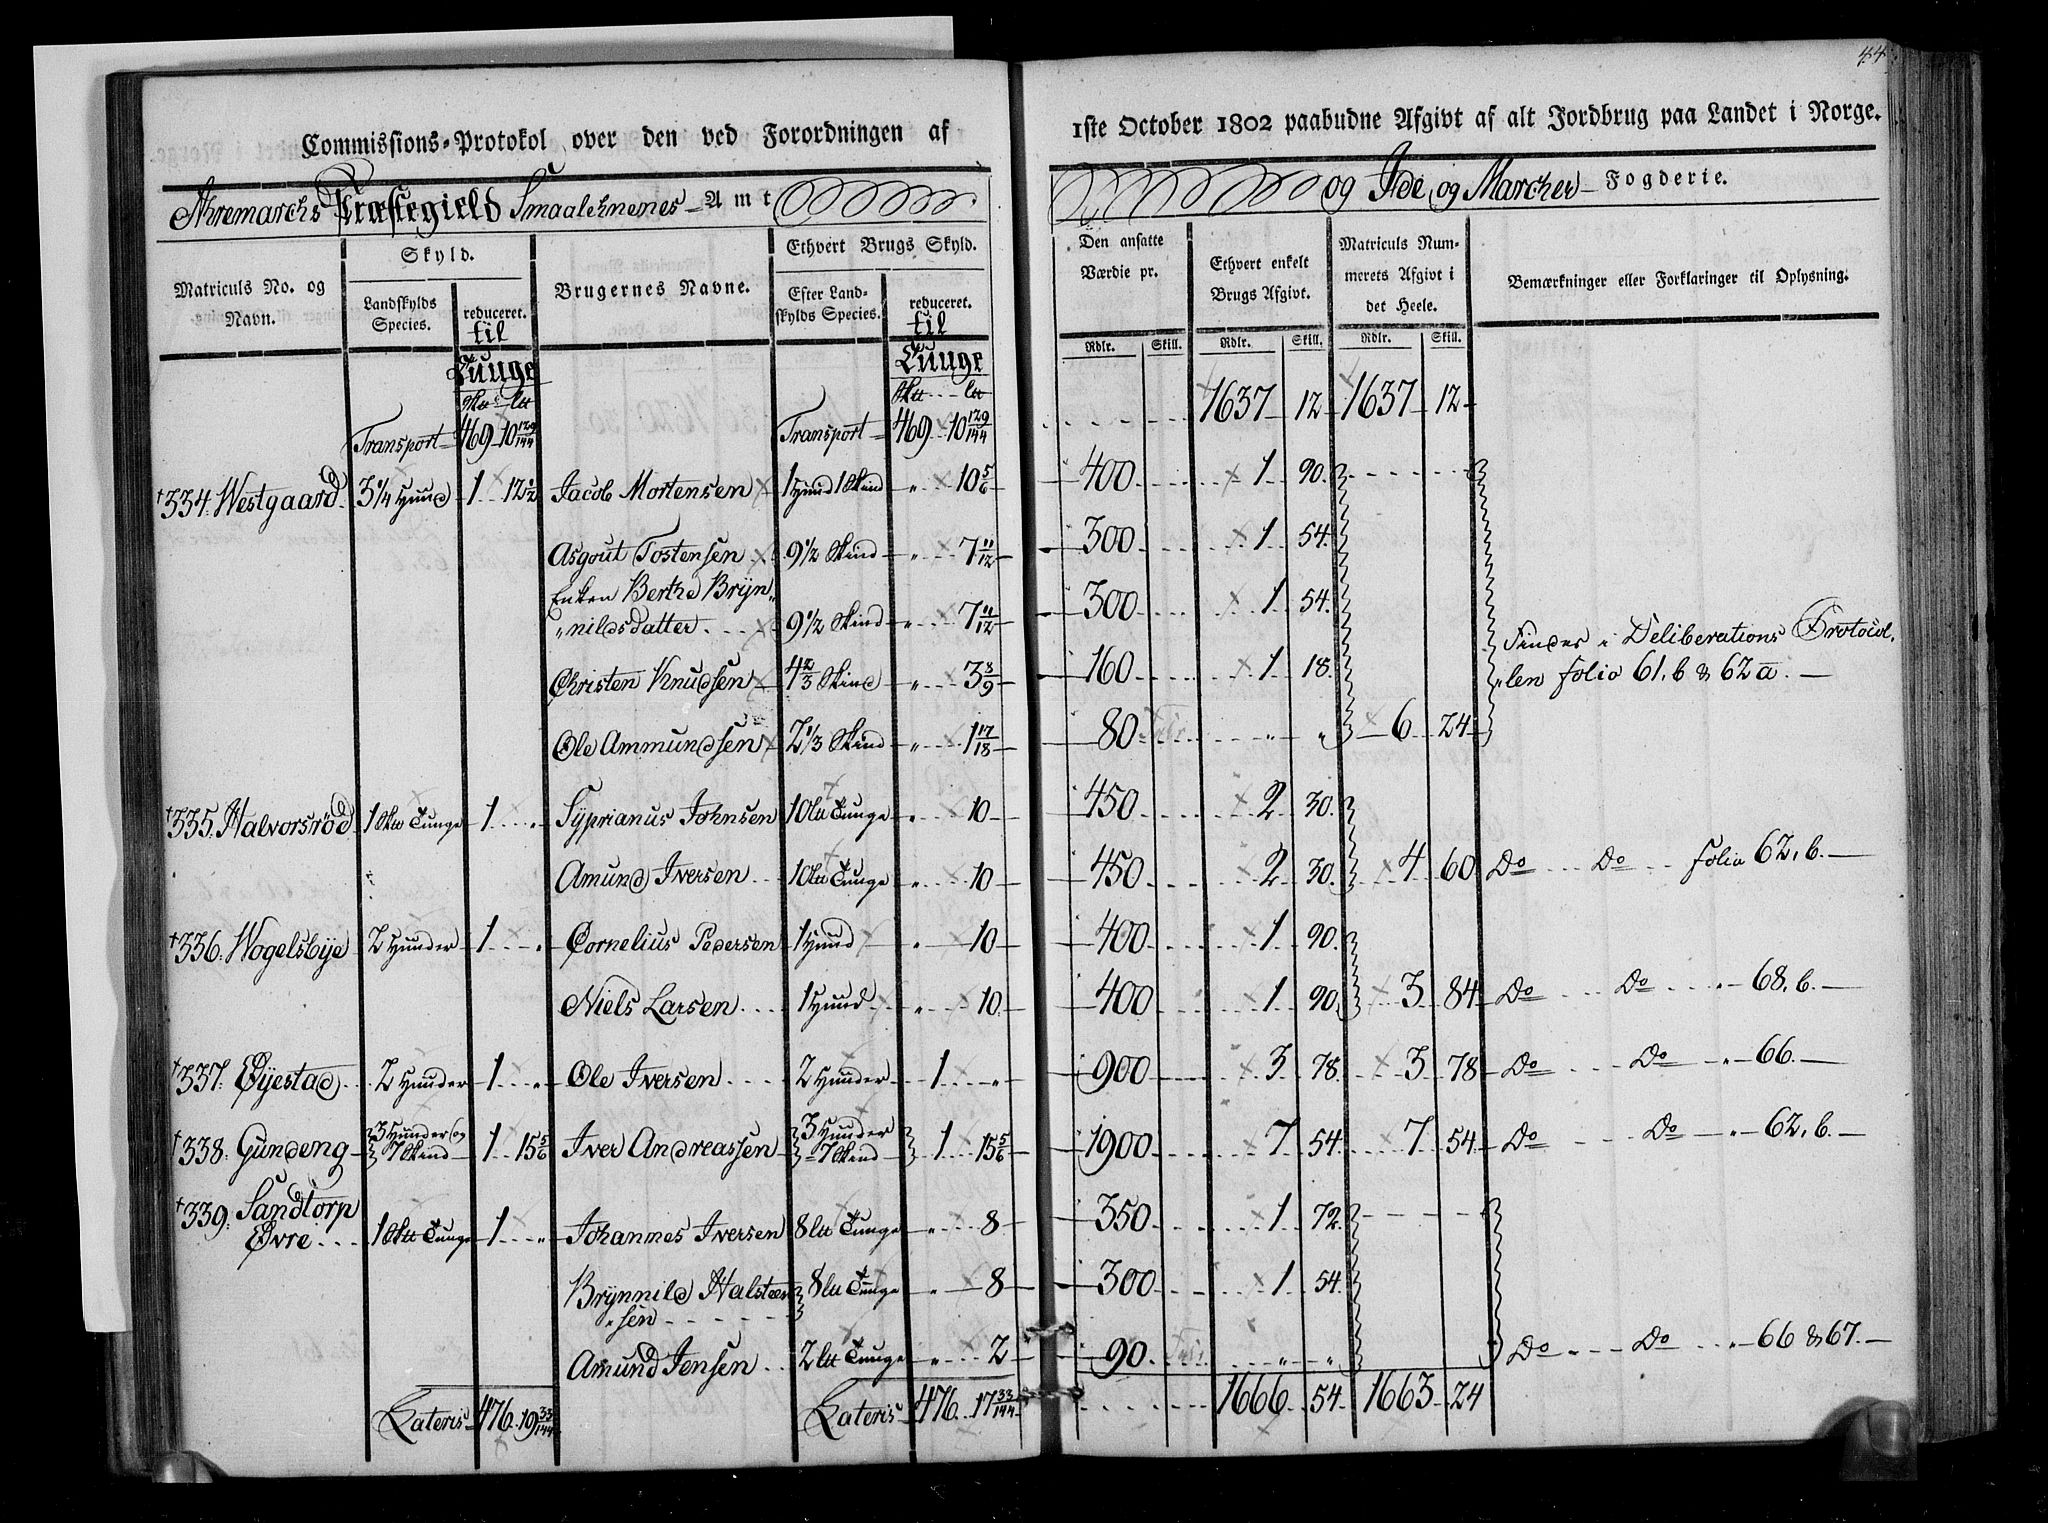 44
Commissions-Protokol over den ved Forordningen af 1ste October 1802 paabudne Afgivt af alt Jordbrug paa Landet i Norge.
Ahremarchs Præstegield Smaalehnenes Amt og Ide og Marcher Fogderie.
Matriculs No. og Navn.
Skyld.
Landskylds Species.
reduceret. til Tunge
Sku Lu
Brugernes Navne.
Ethvert Brugs Skyld.
Efter Landskylds Species.
reduceret. til Tunge
Den ansatte Værdie pr.
Ethvert enkelt Brugs Afgivt.
Matriculs Nummerets Afgivt i det Heele.
Bemærkninger eller Forklaringer til Oplysning.
Rdlr. Skill. Rdlr. Skill. Rdlr. Skill.
Transport 469 10 129/144 Transport 469 10 129/144 1637 12 1637 12
334. Westgaard 3 1/4 Hund 1 12 1/2 Jacob Mortensen 1 Hund 1 Skind " 10 5/6 400 1 90
Asgout Tostensen 9 1/2 Skind " 7 11/12 300 1 54
Enken Berthe Bryn"
"nildsdatter 9 1/2 Skind " 7 11/12 300 1 54
Christen Knudsen 4 2/3 Skind " 3 8/9 160 1 18 Findes i Deliberations Protocol"
"len folio 61,b & 62 a.
Ole Ammundsen 2 1/3 Skind " 1 17/18 80 " " 6 24
335. Halvorsrød 1 Sku Tunge 1 " Syprianus Johnsen 10 Lu Tunge " 10 450 2 30
Amund Iversen 10 Lu Tunge " 10 450 2 30 4 60 Do Do folio 62,b.
336. Wogelsbye 2 Hunder 1 " Cornelius Pedersen 1 Hund " 10 400 1 90
Niels Larsen 1 Hund " 10 400 1 90 3 84 Do Do " 68,b.
337. Øyestad 2 Hunder 1 " Ole Iversen 2 Hunder 1 " 900 3 78 3 78 Do Do " 66.
338. Gundeng 3 Hunder og 7 Skind 1 15 5/6 Iver Andreassen 3 Hunder 7 Skind 1 15 5/6 1900 7 54 7 54 Do Do " 62,b.
339. Sandtorp Øvre 1 Sku Tunge 1 " Johannes Iversen 8 Lu Tunge " 8 350 1 72
Brynnild Halstensen 8 Lu Tunge " 8 300 1 54
Amund Jensen 2 Lu Tunge " 2 90 " " Do Do " 66 & 67.
Lateris 476 19 33/144 Lateris 476 17 33/144 1666 54 1663 24